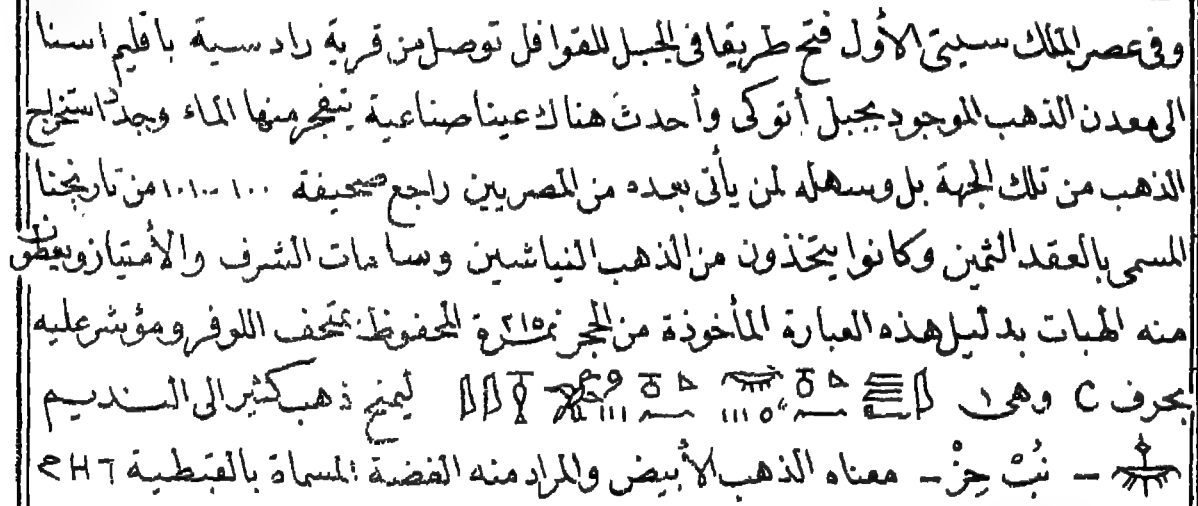 وفى عصر الملك سيتى الأول فتح طريقا فى الجبل للقوافل توصل من قرية رادسية باقليم اسنا
الى معدن الذهب الموجود بجبل أتوكى وأحدث هناك عينا صناعية ينفجر منها الماء وجدّ استخراج
الذهب من تلك الجهة بل وسهله لمن يأتى بعده من المصريين راجع صحيفة ١٠٠ - ١٠١ من تاريخنا
المسمى بالعقد الثمين وكانوا يتخذون من الذهب النياشين وسامات الشرف والأمتياز ويعطون
منه الهبات بدليل هذه العبارة المأخوذة من الحجر نمرة ٢١٥ المحفوظ بمتحف اللوفر ومؤشر عليه
بحرف C وهى ١ ليمنح ذهب كثير الى النديم
– نُبْ حِزْ – معناه الذهب الأبيض والمراد منه الفضة المسماة بالقبطية